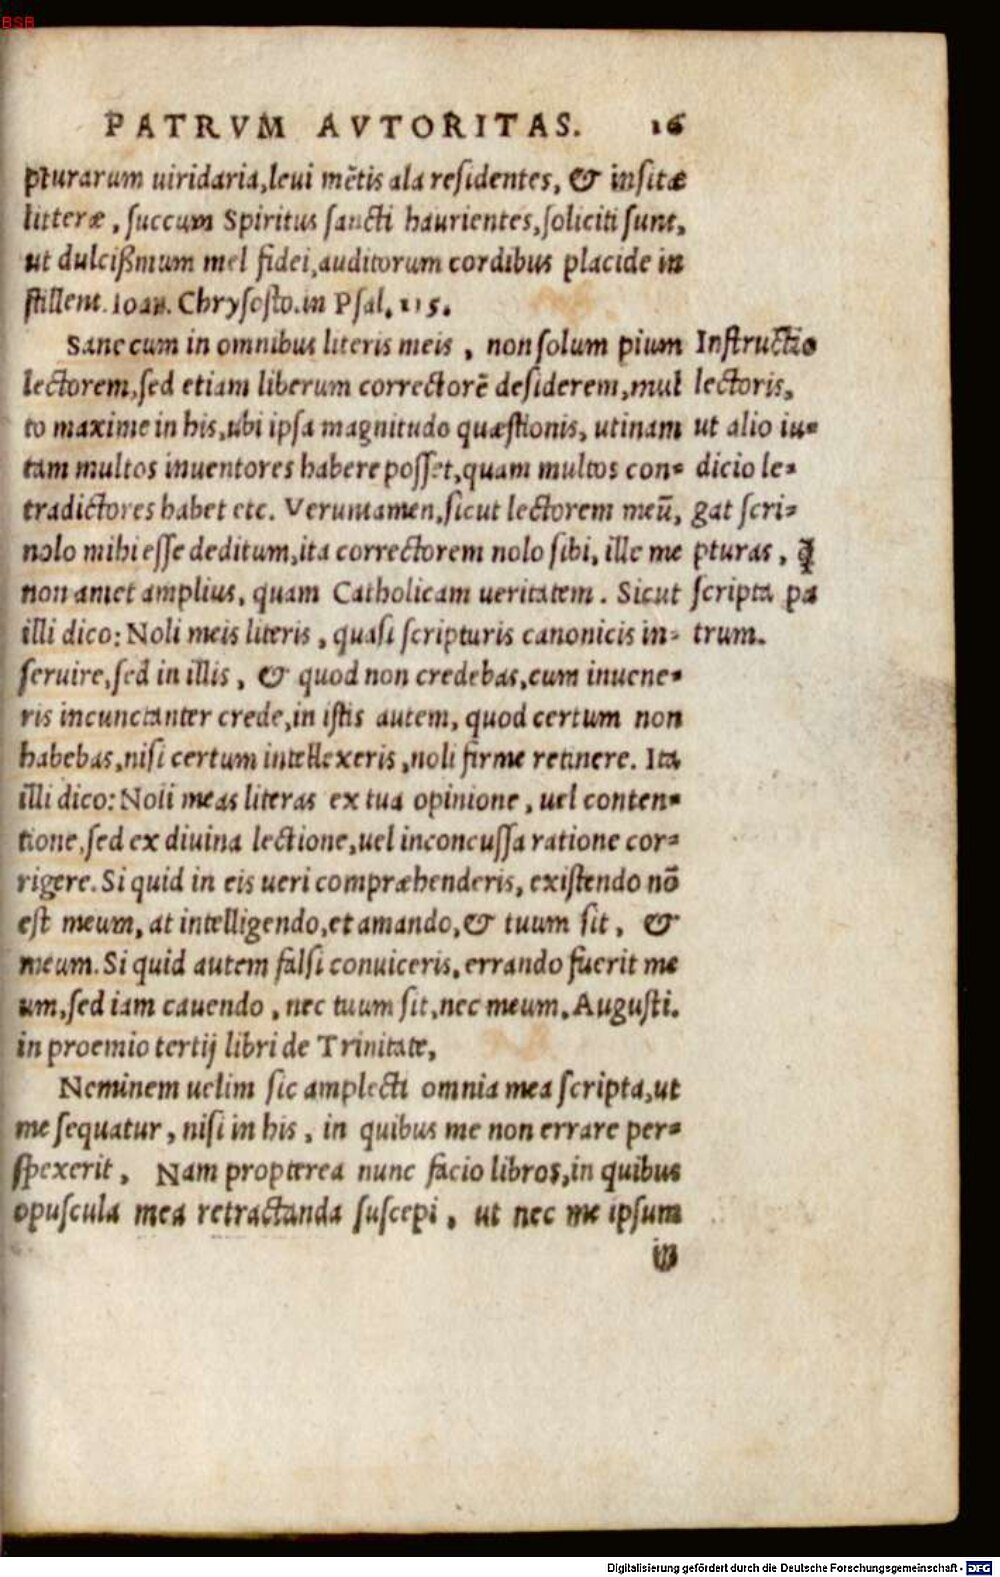 BSB
PATRVM AVTORITAS. 16
pturarum uiridaria, leui mētis ala residentes, & insitæ
litteræ, succum Spiritus sancti haurientes, soliciti sunt,
ut dulcißmum mel fidei, auditorum cordibus placide in
stillent. Ioan. Chrysosto. in Psal. 115.
Sane cum in omnibus literis meis, non solum pium
lectorem, sed etiam liberum correctorē desiderem, mul
to maxime in his, ubi ipsa magnitudo quæstionis, utinam
tam multos inuentores habere posset, quam multos con-
tradictores habet etc. Veruntamen, sicut lectorem meū,
nolo mihi esse deditum, ita correctorem nolo sibi, ille me
non amet amplius, quam Catholicam ueritatem. Sicut
illi dico: Noli meis literis, quasi scripturis canonicis in-
seruire, sed in illis, & quod non credebas, cum inuene-
ris incunctanter crede, in istis autem, quod certum non
habebas, nisi certum intellexeris, noli firme retinere. Ita
illi dico: Noli meas literas ex tua opinione, uel conten-
tione, sed ex diuina lectione, uel inconcussa ratione cor-
rigere. Si quid in eis ueri compræhenderis, existendo nō
est meum, at intelligendo, et amando, & tuum sit, &
meum. Si quid autem falsi conuiceris, errando fuerit me
um, sed iam cauendo, nec tuum sit, nec meum. Augusti.
in proemio tertij libri de Trinitate.
Neminem uelim sic amplecti omnia mea scripta, ut
me sequatur, nisi in his, in quibus me non errare per-
spexerit, Nam propterea nunc facio libros, in quibus
opuscula mea retractanda suscepi, ut nec me ipsum
in
Instructio
lectoris,
ut alio iu-
dicio le-
gat scri-
pturas, ꝗ̃
scripta pa
trum.
Digitalisierung gefördert durch die Deutsche Forschungsgemeinschaft - DFG